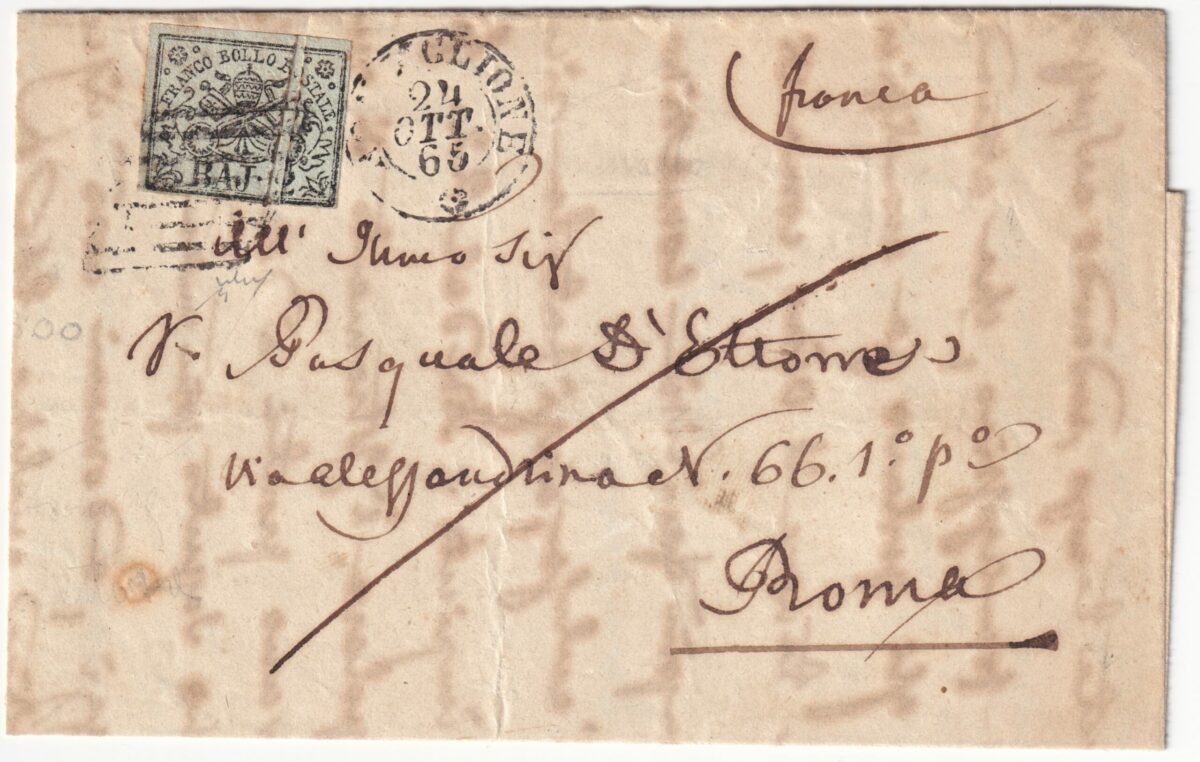 FRANCO BOLLO POSTALE
BAJ.
GLIONE
24
OTT.
65
franca
All' Illmo Sig
Pasquale D'Ettorre
Via Alessandrina N. 66. 1.º pº
Roma